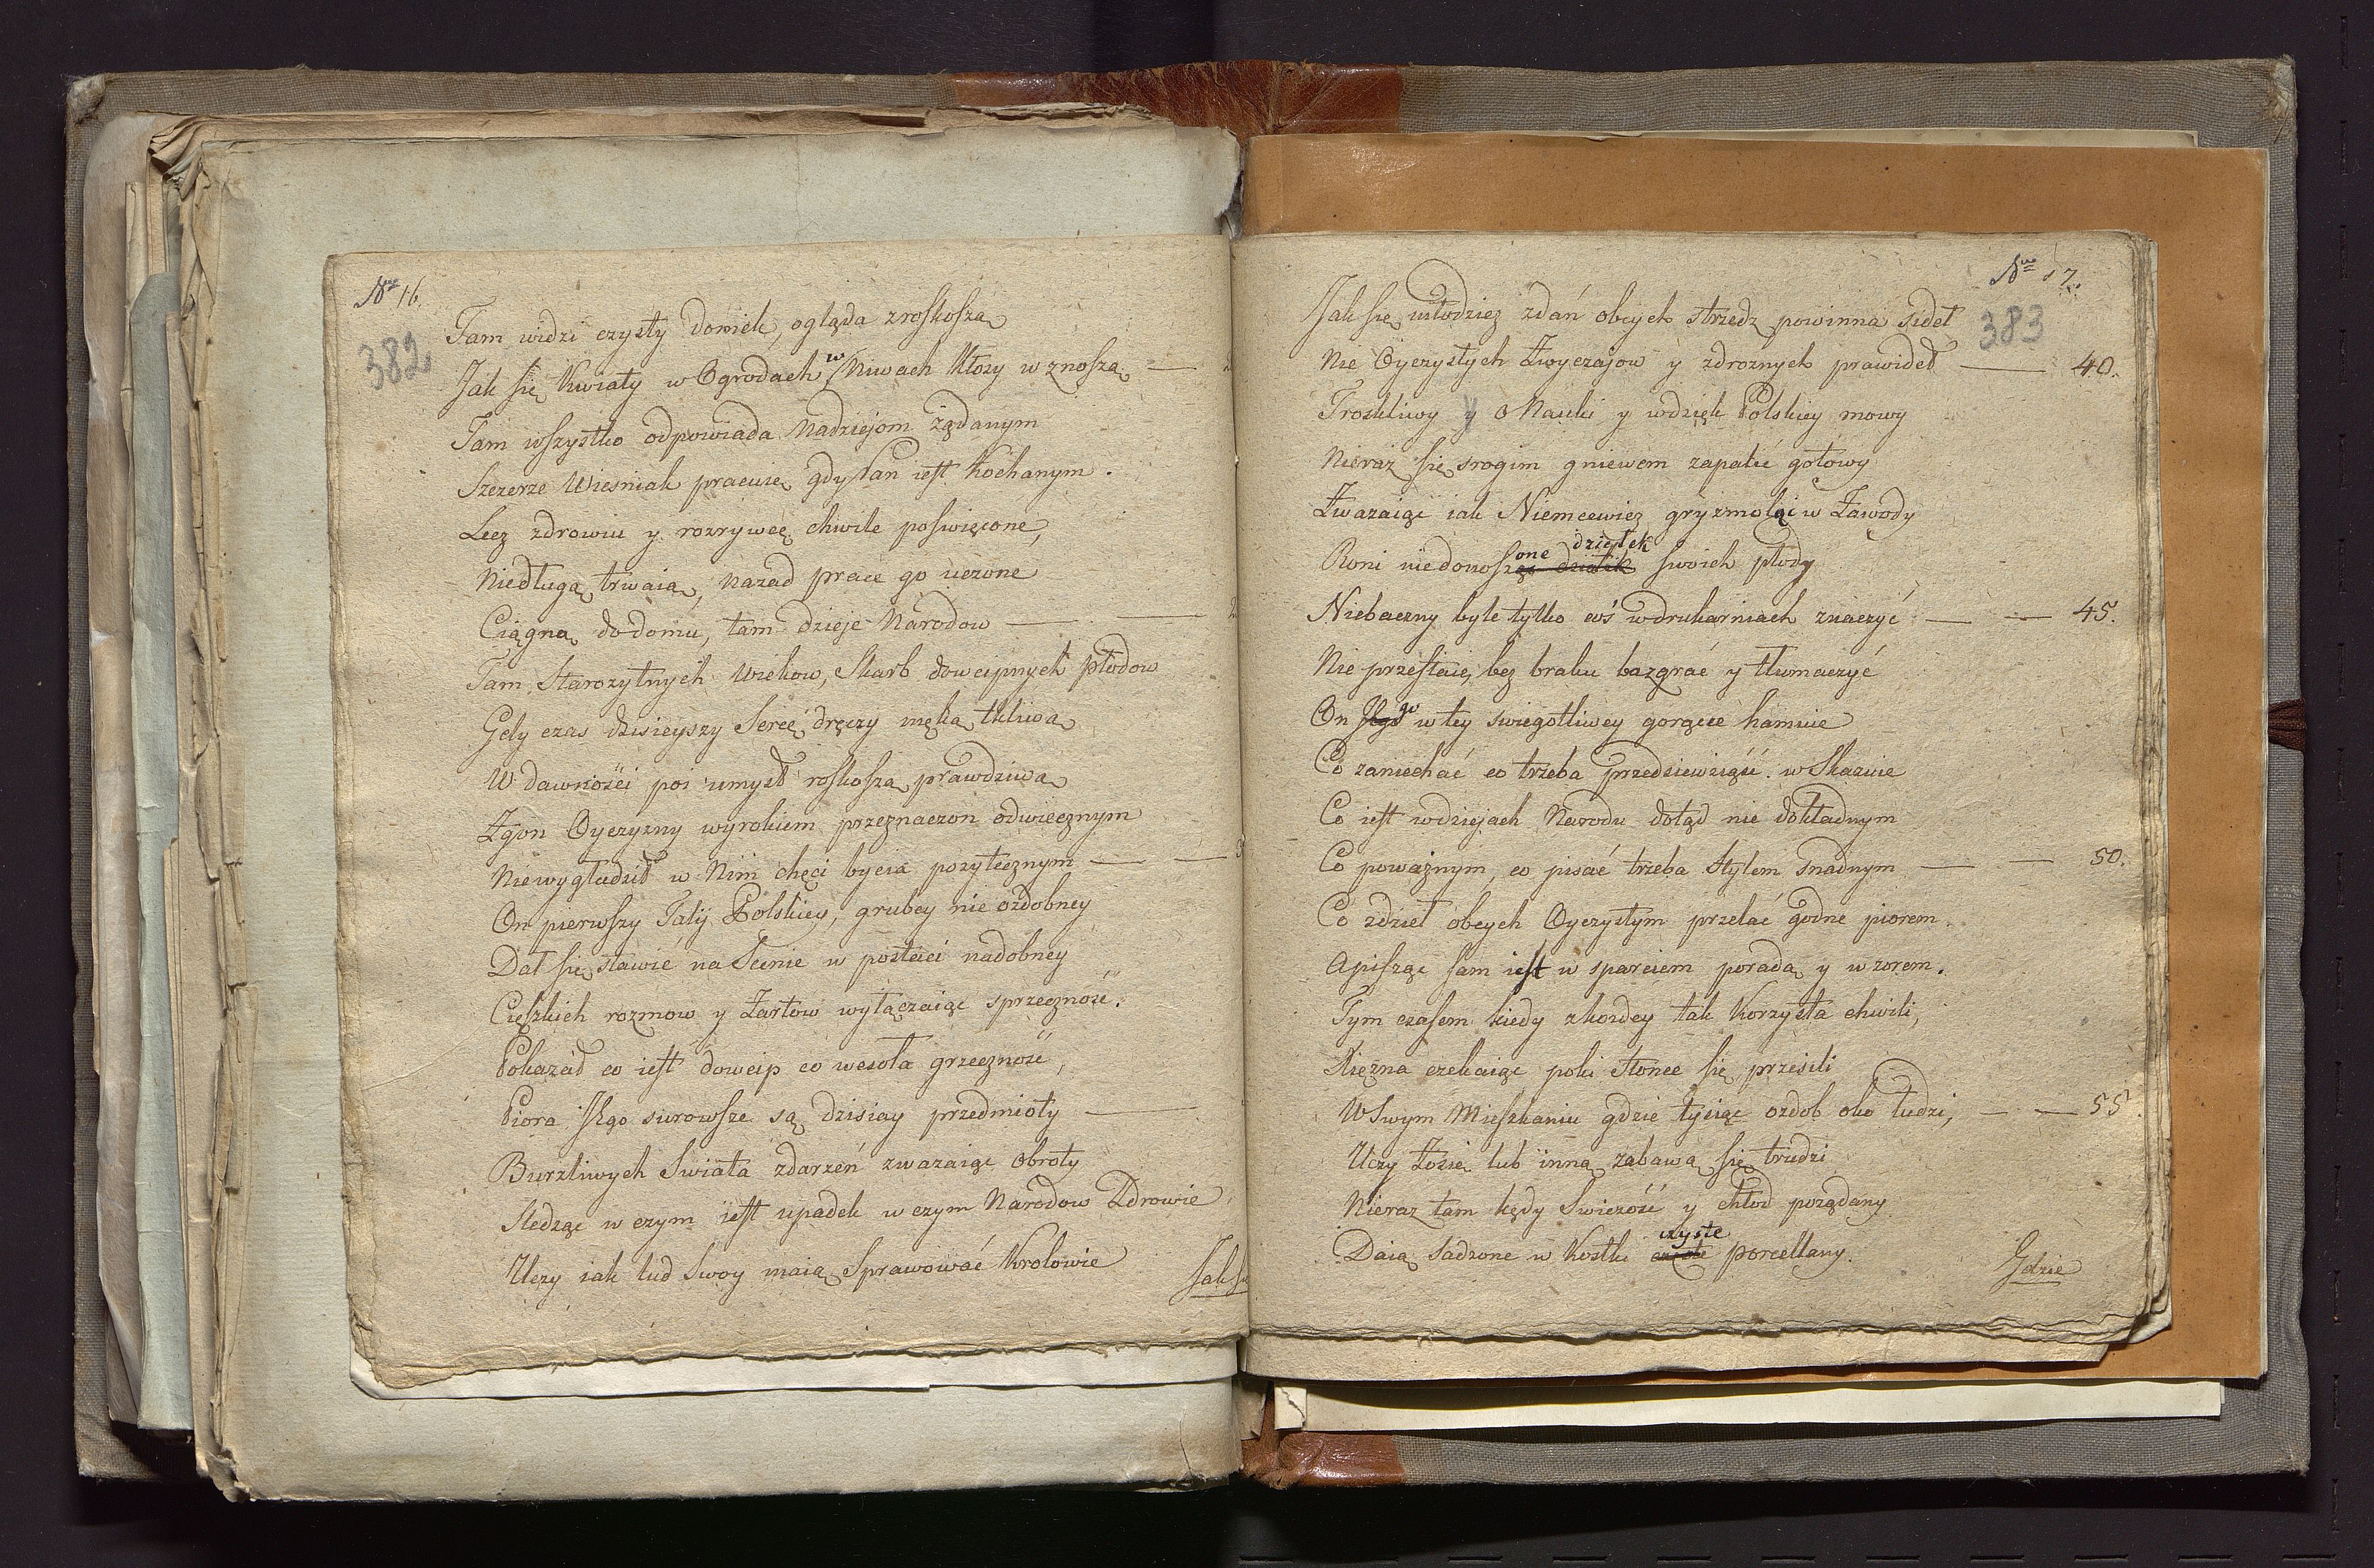 Nro 16.
382
Tam widzi czysty domek, ogląda zroskoszą
Jak się Kwiaty w Ogrodach w Niwach Kłosy wznoszą
Tam wszystko odpowiada Nadziejom żądanym
Szczerze Wiesniak pracuie gdy Pan iest Kochanym.
Lecz zdrowiu y rozrywce chwile poswięcone,
Niedługą trwaią, nazad prace go uczone
Ciągną do domu, tam dzieje Narodow
Tam Starozytnych Wiekow, Skarb dowcipnych płodow
Gdy czas dzisieyszy Serce dręczy męką tkliwą
W dawności poi umysł roskoszą prawdziwą
Zgon Oyczyzny wyrokiem przeznaczon odwiecznym
Niewygładził w Nim chęci bycia pozytecznym
On pierwszy Talij Polskiey, grubey nie ozdobney
Dał się stawić na Scenie w postaci nadobney
Cięzkich rozmow y Zartow wyłączaiąc sprzeczność.
Pokazał co iest dowcip co wesoła grzeczność,
Piora Jego surowsze są dzisiay przedmioty
Burzliwych Swiata zdarzeń zwazaiąc obroty
Sledząc w czym iest upadek w czym Narodow Zdrowie
Uczy iak lud Swoy maią Sprawować Krolowie
Jak się
Nro 17.
383
Jak się młodziez zdań obcych strzedz powinna sideł
Nie Oyczystych Zwyczajow y zdroznych prawideł 40.
Troskliwy y o Nauki y wdzięk Polskiey mowy
Nieraz się srogim gniewem zapalić gotowy
Zwazaiąc iak Niemcewicz gryzmoląc w Zawody
one dziełek
Roni niedonosząc dziatek swoich płody
Niebaczny byle tylko coś wdrukarniach znaczyć 45.
Nie przestaie bez braku bazgrać y tłumaczyć
On Jego go w tey swiegotliwey gorączce hamuie
Co zaniechać co trzeba przedsiewziąść wskazuie
Co iest wdziejach Narodu dotąd nie dokładnym
Co poważnym, co pisać trzeba Stylem snadnym 50.
Co zdzieł obcych Oyczystym przelać godne piorem.
A pisząc sam iest wsparciem poradą y wzorem.
Tym czasem kiedy zkazdey tak Korzysta chwili,
Xięzna czekaiąc poki słonce się przesili
W Swym Mieszkaniu gdzie tysiąc ozdob oko łudzi, 55
Uczy Zosię lub inną zabawą się trudzi
Nieraz tam kędy Swiezość y chłod pożądany
czyste
Daią sadzone w Kostki czyste porcellany.
Gdzie